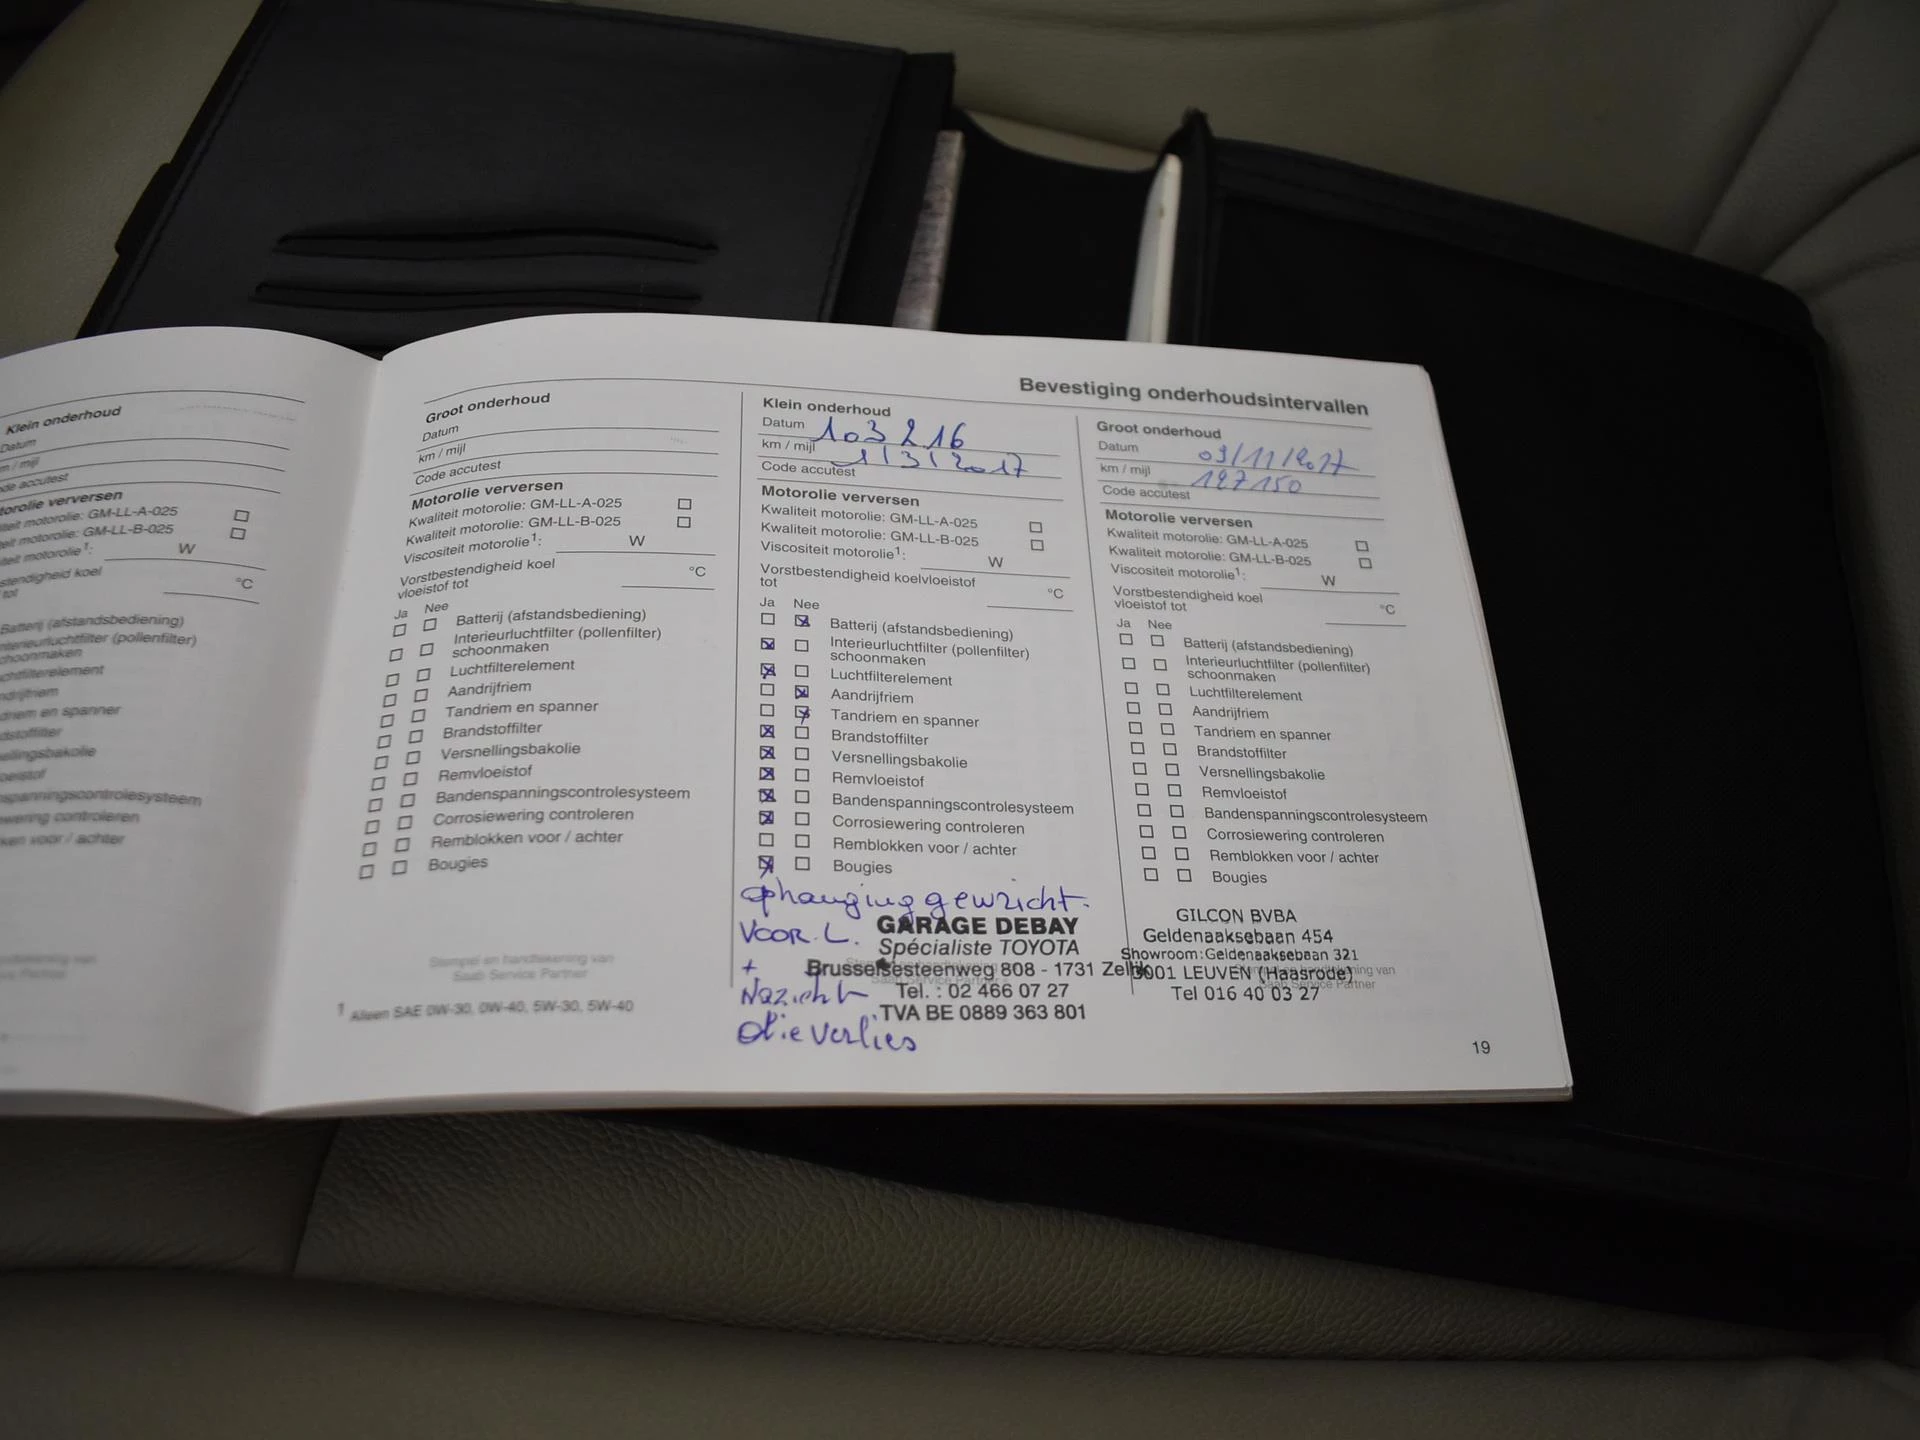 Bevestiging onderhoudsintervallen
Klein onderhoud
Datum
km / mijl
code accutest
Motorolie verversen
Kwaliteit motorolie: GM-LL-A-025
Kwaliteit motorolie: GM-LL-B-025
motorolie1:
W
koel
tot
°C
Batterij (afstandsbediening)
Interieurluchtfilter (pollenfilter)
schoonmaken
Luchtfilterelement
Aandrijfriem
Tandriem en spanner
Brandstoffilter
Versnellingsbakolie
Remvloeistof
Bandenspanningscontrolesysteem
controleren
voor / achter
Groot onderhoud
Datum
km / mijl
Code accutest
Motorolie verversen
Kwaliteit motorolie: GM-LL-A-025
Kwaliteit motorolie: GM-LL-B-025
Viscositeit motorolie1:
W
Vorstbestendigheid koel
vloeistof tot
°C
Ja Nee
Batterij (afstandsbediening)
Interieurluchtfilter (pollenfilter)
schoonmaken
Luchtfilterelement
Aandrijfriem
Tandriem en spanner
Brandstoffilter
Versnellingsbakolie
Remvloeistof
Bandenspanningscontrolesysteem
Corrosiewering controleren
Remblokken voor / achter
Bougies
Stempel en handtekening van
Saab Service Partner
1 Alleen SAE 0W-30, 0W-40, 5W-30, 5W-40
Klein onderhoud
Datum 103 216
km / mijl 1/3/2017
Code accutest
Motorolie verversen
Kwaliteit motorolie: GM-LL-A-025
Kwaliteit motorolie: GM-LL-B-025
Viscositeit motorolie1:
W
Vorstbestendigheid koelvloeistof
tot
°C
Ja Nee
Batterij (afstandsbediening)
Interieurluchtfilter (pollenfilter)
schoonmaken
Luchtfilterelement
Aandrijfriem
Tandriem en spanner
Brandstoffilter
Versnellingsbakolie
Remvloeistof
Bandenspanningscontrolesysteem
Corrosiewering controleren
Remblokken voor / achter
Bougies
ophanging gewricht.
VOOR. L.
+
Nazicht
Olie verlies
GARAGE DEBAY
Spécialiste TOYOTA
Brusselsesteenweg 808 - 1731 Zellik
Tel. : 02 466 07 27
TVA BE 0889 363 801
Groot onderhoud
Datum 03/11/2017
km / mijl 127150
Code accutest
Motorolie verversen
Kwaliteit motorolie: GM-LL-A-025
Kwaliteit motorolie: GM-LL-B-025
Viscositeit motorolie1:
W
Vorstbestendigheid koel
vloeistof tot
°C
Ja Nee
Batterij (afstandsbediening)
Interieurluchtfilter (pollenfilter)
schoonmaken
Luchtfilterelement
Aandrijfriem
Tandriem en spanner
Brandstoffilter
Versnellingsbakolie
Remvloeistof
Bandenspanningscontrolesysteem
Corrosiewering controleren
Remblokken voor / achter
Bougies
GILCON BVBA
Geldenaaksebaan 454
Showroom:Geldenaaksebaan 321
3001 LEUVEN (Haasrode)
Tel 016 40 03 27
19